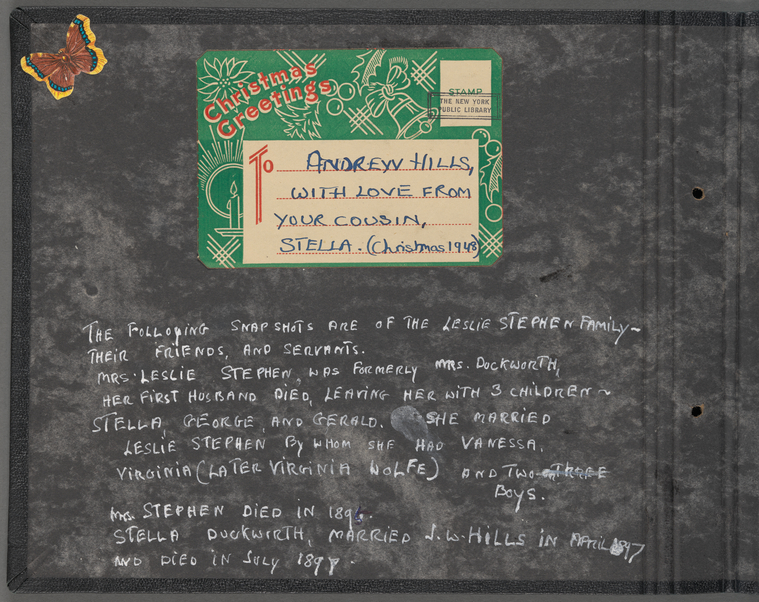 Christmas
Greetings
STAMP
THE NEW YORK
PUBLIC LIBRARY
To ANDREW HILLS,
WITH LOVE FROM
YOUR COUSIN,
STELLA. (Christmas 1948)
THE FOLLOWING SNAPSHOTS ARE OF THE LESLIE STEPHEN FAMILY~
THEIR FRIENDS, AND SERVANTS.
MRS. LESLIE STEPHEN, WAS FORMERLY MRS. DUCKWORTH,
HER FIRST HUSBAND DIED, LEAVING HER WITH 3 CHILDREN~
STELLA, GEORGE, AND GERALD. SHE MARRIED
LESLIE STEPHEN BY WHOM SHE HAD VANESSA,
VIRGINIA (LATER VIRGINIA WOLFE) AND TWO
BOYS.
MRS. STEPHEN DIED IN
STELLA DUCKWORTH, MARRIED J.W. HILLS IN APRIL 1897
AND DIED IN JULY 1897.